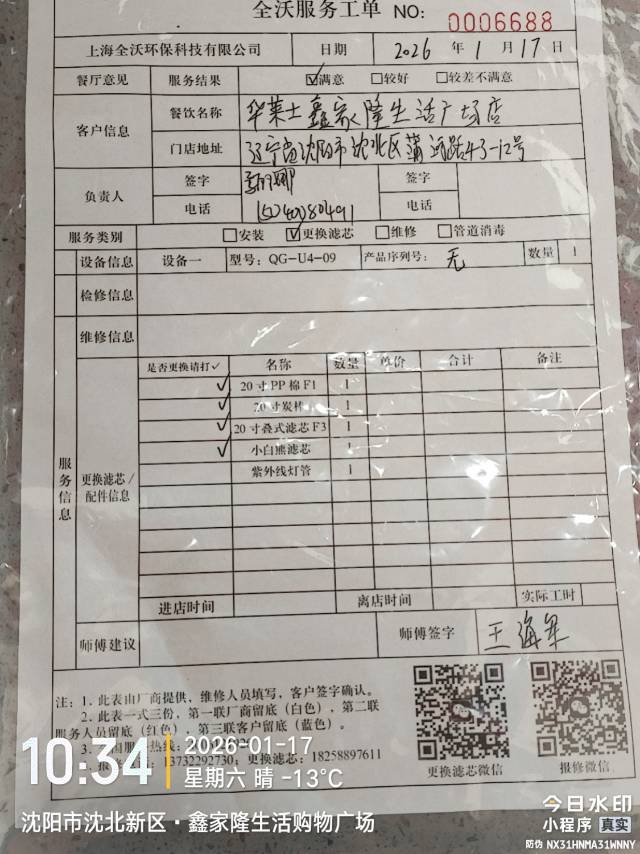 全沃服务工单 NO: 0006688
上海全沃环保科技有限公司 日期 2026 年 1 月 17 日
餐厅意见 服务结果 ☑满意 □较好 □较差不满意
客户信息 餐饮名称 华莱士鑫家隆生活广场店
门店地址 辽宁省沈阳市沈北区蒲河路43-12号
负责人 签字 签字
电话 电话
服务类别 □安装 ☑更换滤芯 □维修 □管道消毒
设备信息 设备一 型号: QG-U4-09 产品序列号: 无 数量 1
检修信息
维修信息
服务信息 更换滤芯/配件信息
是否更换请打✓ 名称 数量 单价 合计 备注
✓ 20寸PP棉F1 1
✓ 20寸炭棒 1
✓ 20寸叠式滤芯F3 1
✓ 小白熊滤芯 1
紫外线灯管 1
进店时间 离店时间 实际工时
师傅建议 师傅签字 王海军
注: 1. 此表由厂商提供, 维修人员填写, 客户签字确认。
2. 此表一式三份, 第一联厂商留底(白色), 第二联
服务人员留底(红色), 第三联客户留底(蓝色)。
13732292730; 更换滤芯: 18258897611
更换滤芯微信 报修微信
10:34 2026-01-17
星期六 晴 -13℃
沈阳市沈北新区·鑫家隆生活购物广场
今日水印
小程序 真实
防伪 NX31HNMA31WNNY